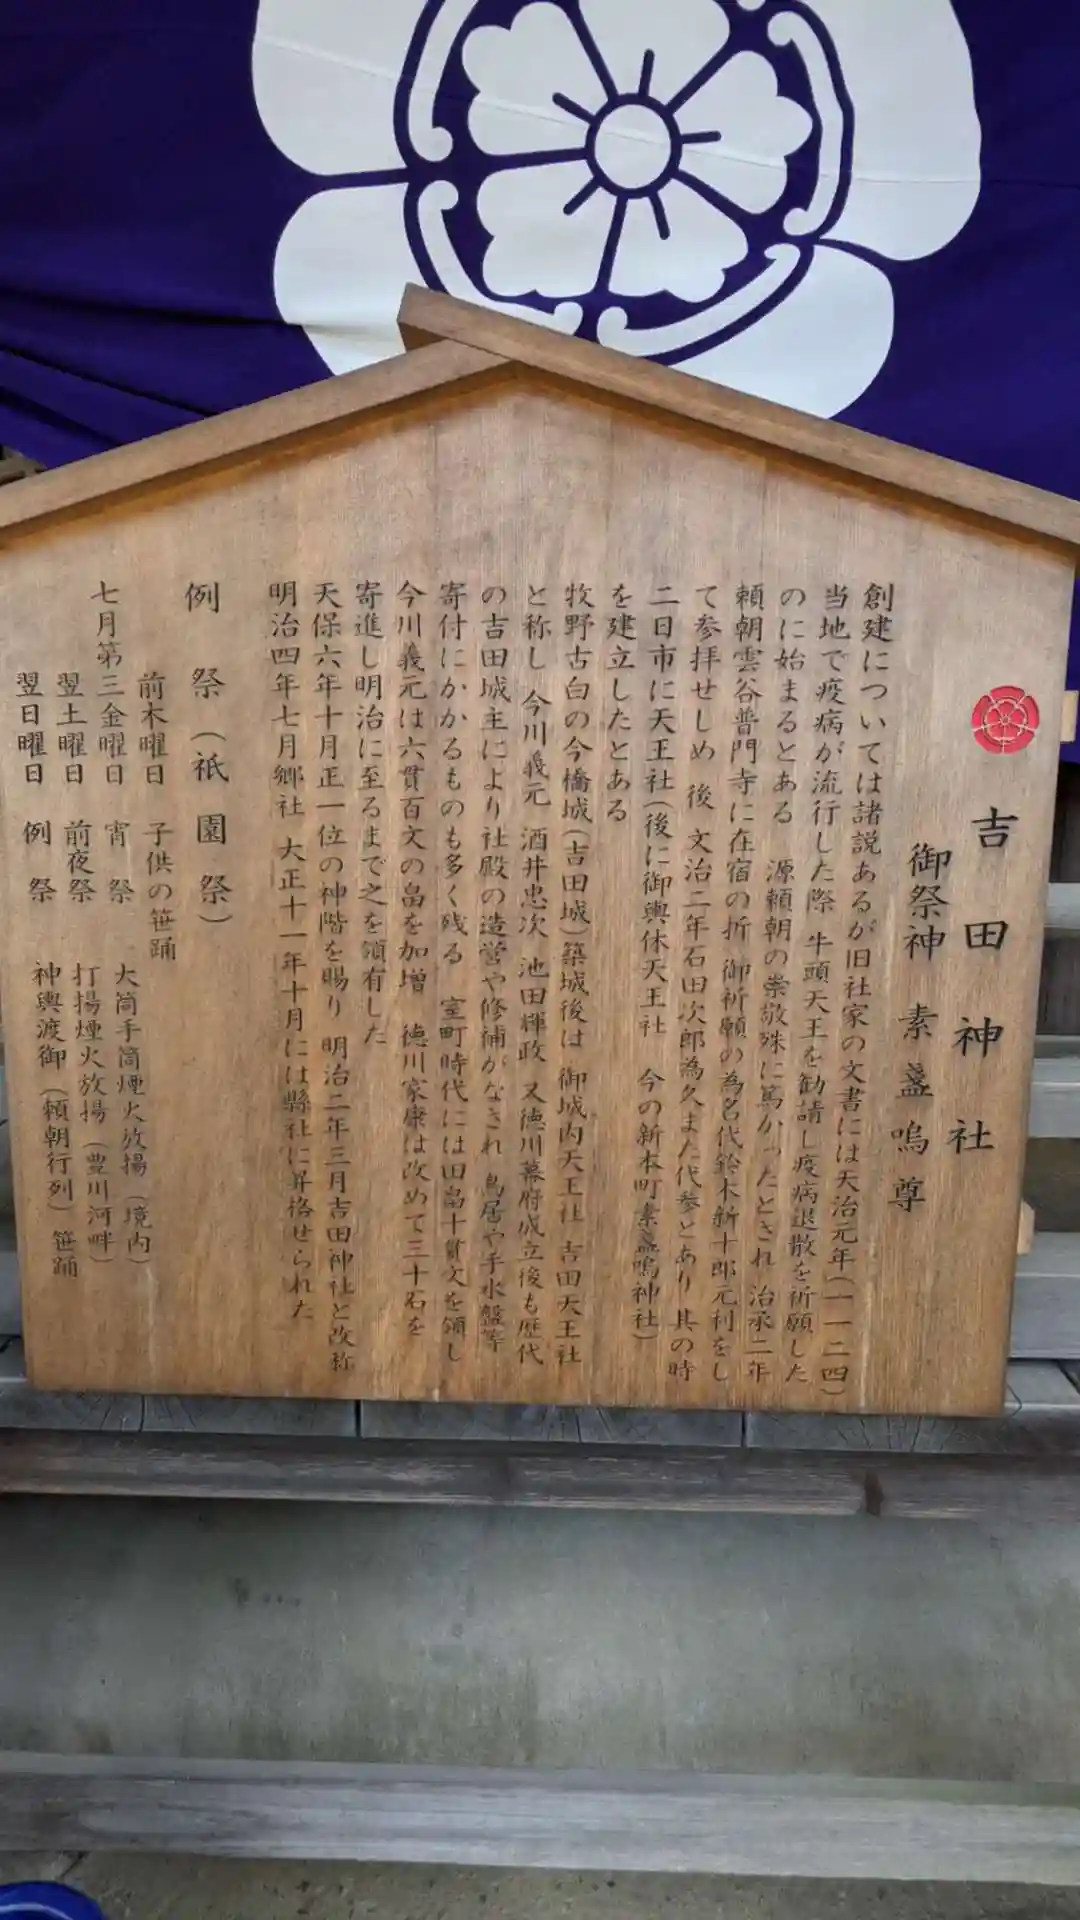 吉田神社
御祭神 素盞嗚尊
創建については諸説あるが旧社家の文書には天治元年(一一二四)
当地で疫病が流行した際 牛頭天王を勧請し疫病退散を祈願した
のに始まるとある 源頼朝の崇敬殊に篤かったとされ 治承二年
頼朝雲谷普門寺に在宿の折 御祈願の為名代鈴木新十郎元利をし
て参拝せしめ 後 文治二年石田次郎為久また代参とあり 其の時
二日市に天王社(後に御輿休天王社 今の新本町素盞嗚神社)
を建立したとある
牧野古白の今橋城(吉田城)築城後は 御城内天王社 吉田天王社
と称し 今川義元 酒井忠次 池田輝政 又徳川幕府成立後も歴代
の吉田城主により社殿の造営や修補がなされ 鳥居や手水盤等
寄付にかかるものも多く残る 室町時代には田畠十貫文を領し
今川義元は六貫百文の畠を加増 徳川家康は改めて三十石を
寄進し明治に至るまで之を領有した
天保六年十月正一位の神階を賜り 明治二年三月吉田神社と改称
明治四年七月郷社 大正十一年十月には縣社に昇格せられた
例祭(祇園祭)
前木曜日 子供の笹踊
七月第三金曜日 宵祭 大筒手筒煙火放揚(境内)
翌土曜日 前夜祭 打揚煙火放揚(豊川河畔)
翌日曜日 例祭 神輿渡御(頼朝行列) 笹踊